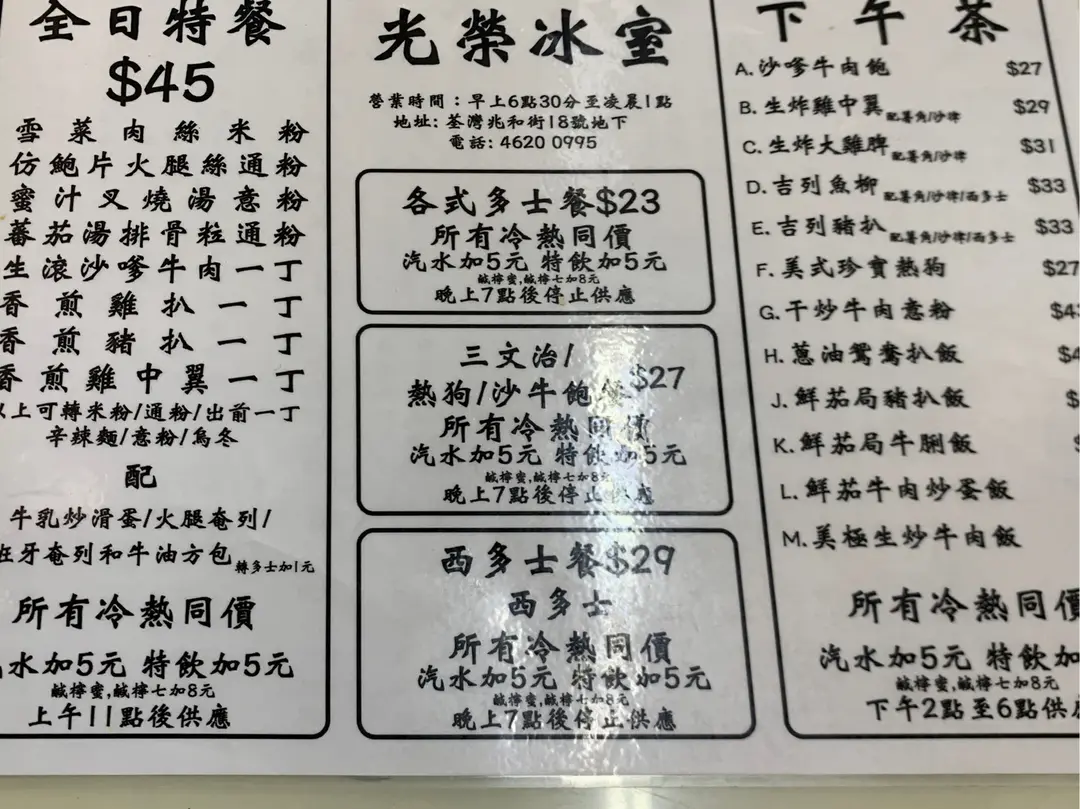 全日特餐
$45
雪菜肉絲米粉
仿鮑片火腿絲通粉
蜜汁叉燒湯意粉
蕃茄湯排骨粒通粉
生滾沙嗲牛肉一丁
香煎雞扒一丁
香煎豬扒一丁
香煎雞中翼一丁
以上可轉米粉/通粉/出前一丁
辛辣麵/意粉/烏冬
配
牛乳炒滑蛋/火腿奄列/
班牙奄列和牛油方包 轉多士加1元
所有冷熱同價
汽水加5元 特飲加5元
鹹檸蜜,鹹檸七加8元
上午11點後供應
光榮冰室
營業時間：早上6點30分至凌晨1點
地址: 荃灣兆和街18號地下
電話: 4620 0995
各式多士餐$23
所有冷熱同價
汽水加5元 特飲加5元
鹹檸蜜,鹹檸七加8元
晚上7點後停止供應
三文治/
熱狗/沙牛飽 $27
所有冷熱同價
汽水加5元 特飲加5元
鹹檸蜜,鹹檸七加8元
晚上7點後停止供應
西多士餐$29
西多士
所有冷熱同價
汽水加5元 特飲加5元
鹹檸蜜,鹹檸七加8元
晚上7點後停止供應
下午茶
A. 沙嗲牛肉飽 $27
B. 生炸雞中翼 配薯角/沙律 $29
C. 生炸大雞脾 配薯角/沙律 $31
D. 吉列魚柳 配薯角/沙律/西多士 $33
E. 吉列豬扒 配薯角/沙律/西多士 $33
F. 美式珍寶熱狗 $27
G. 干炒牛肉意粉
H. 蔥油鴛鴦扒飯
J. 鮮茄焗豬扒飯
K. 鮮茄局牛脷飯
L. 鮮茄牛肉炒蛋飯
M. 美極生炒牛肉飯
所有冷熱同價
汽水加5元 特飲加
鹹檸蜜,鹹檸七加8元
下午2點至6點供應